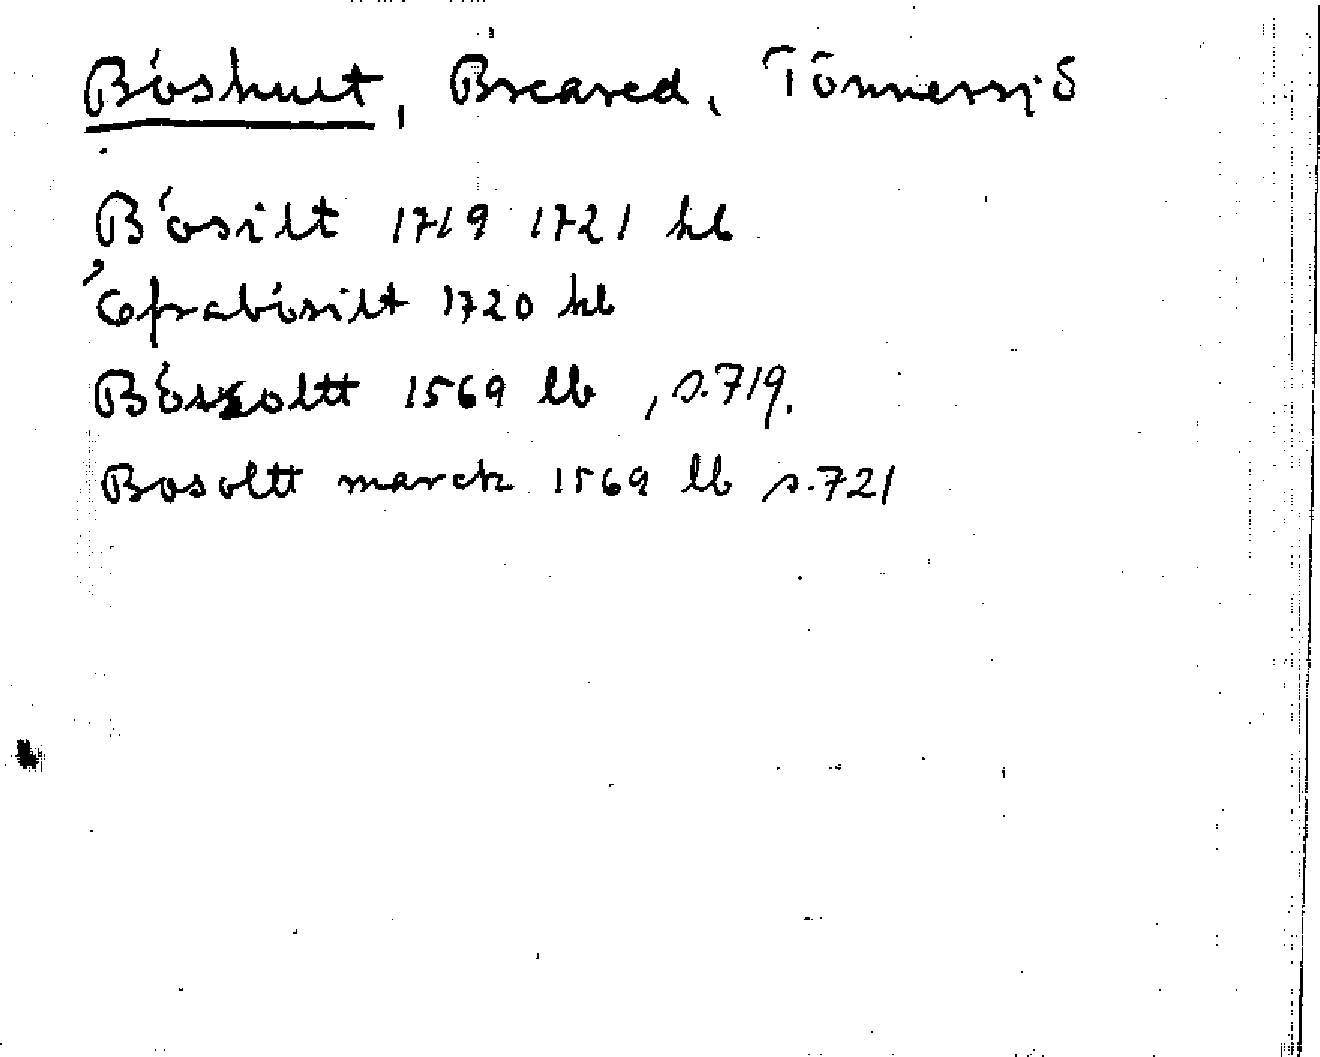 Böshult, Breared, Tönnersjö
Bösilt 1719 1721 hb
Öfrabösilt 1720 hb
Böszoltt 1569 lb, s.719.
Bosoltt marck 1569 lb s.721